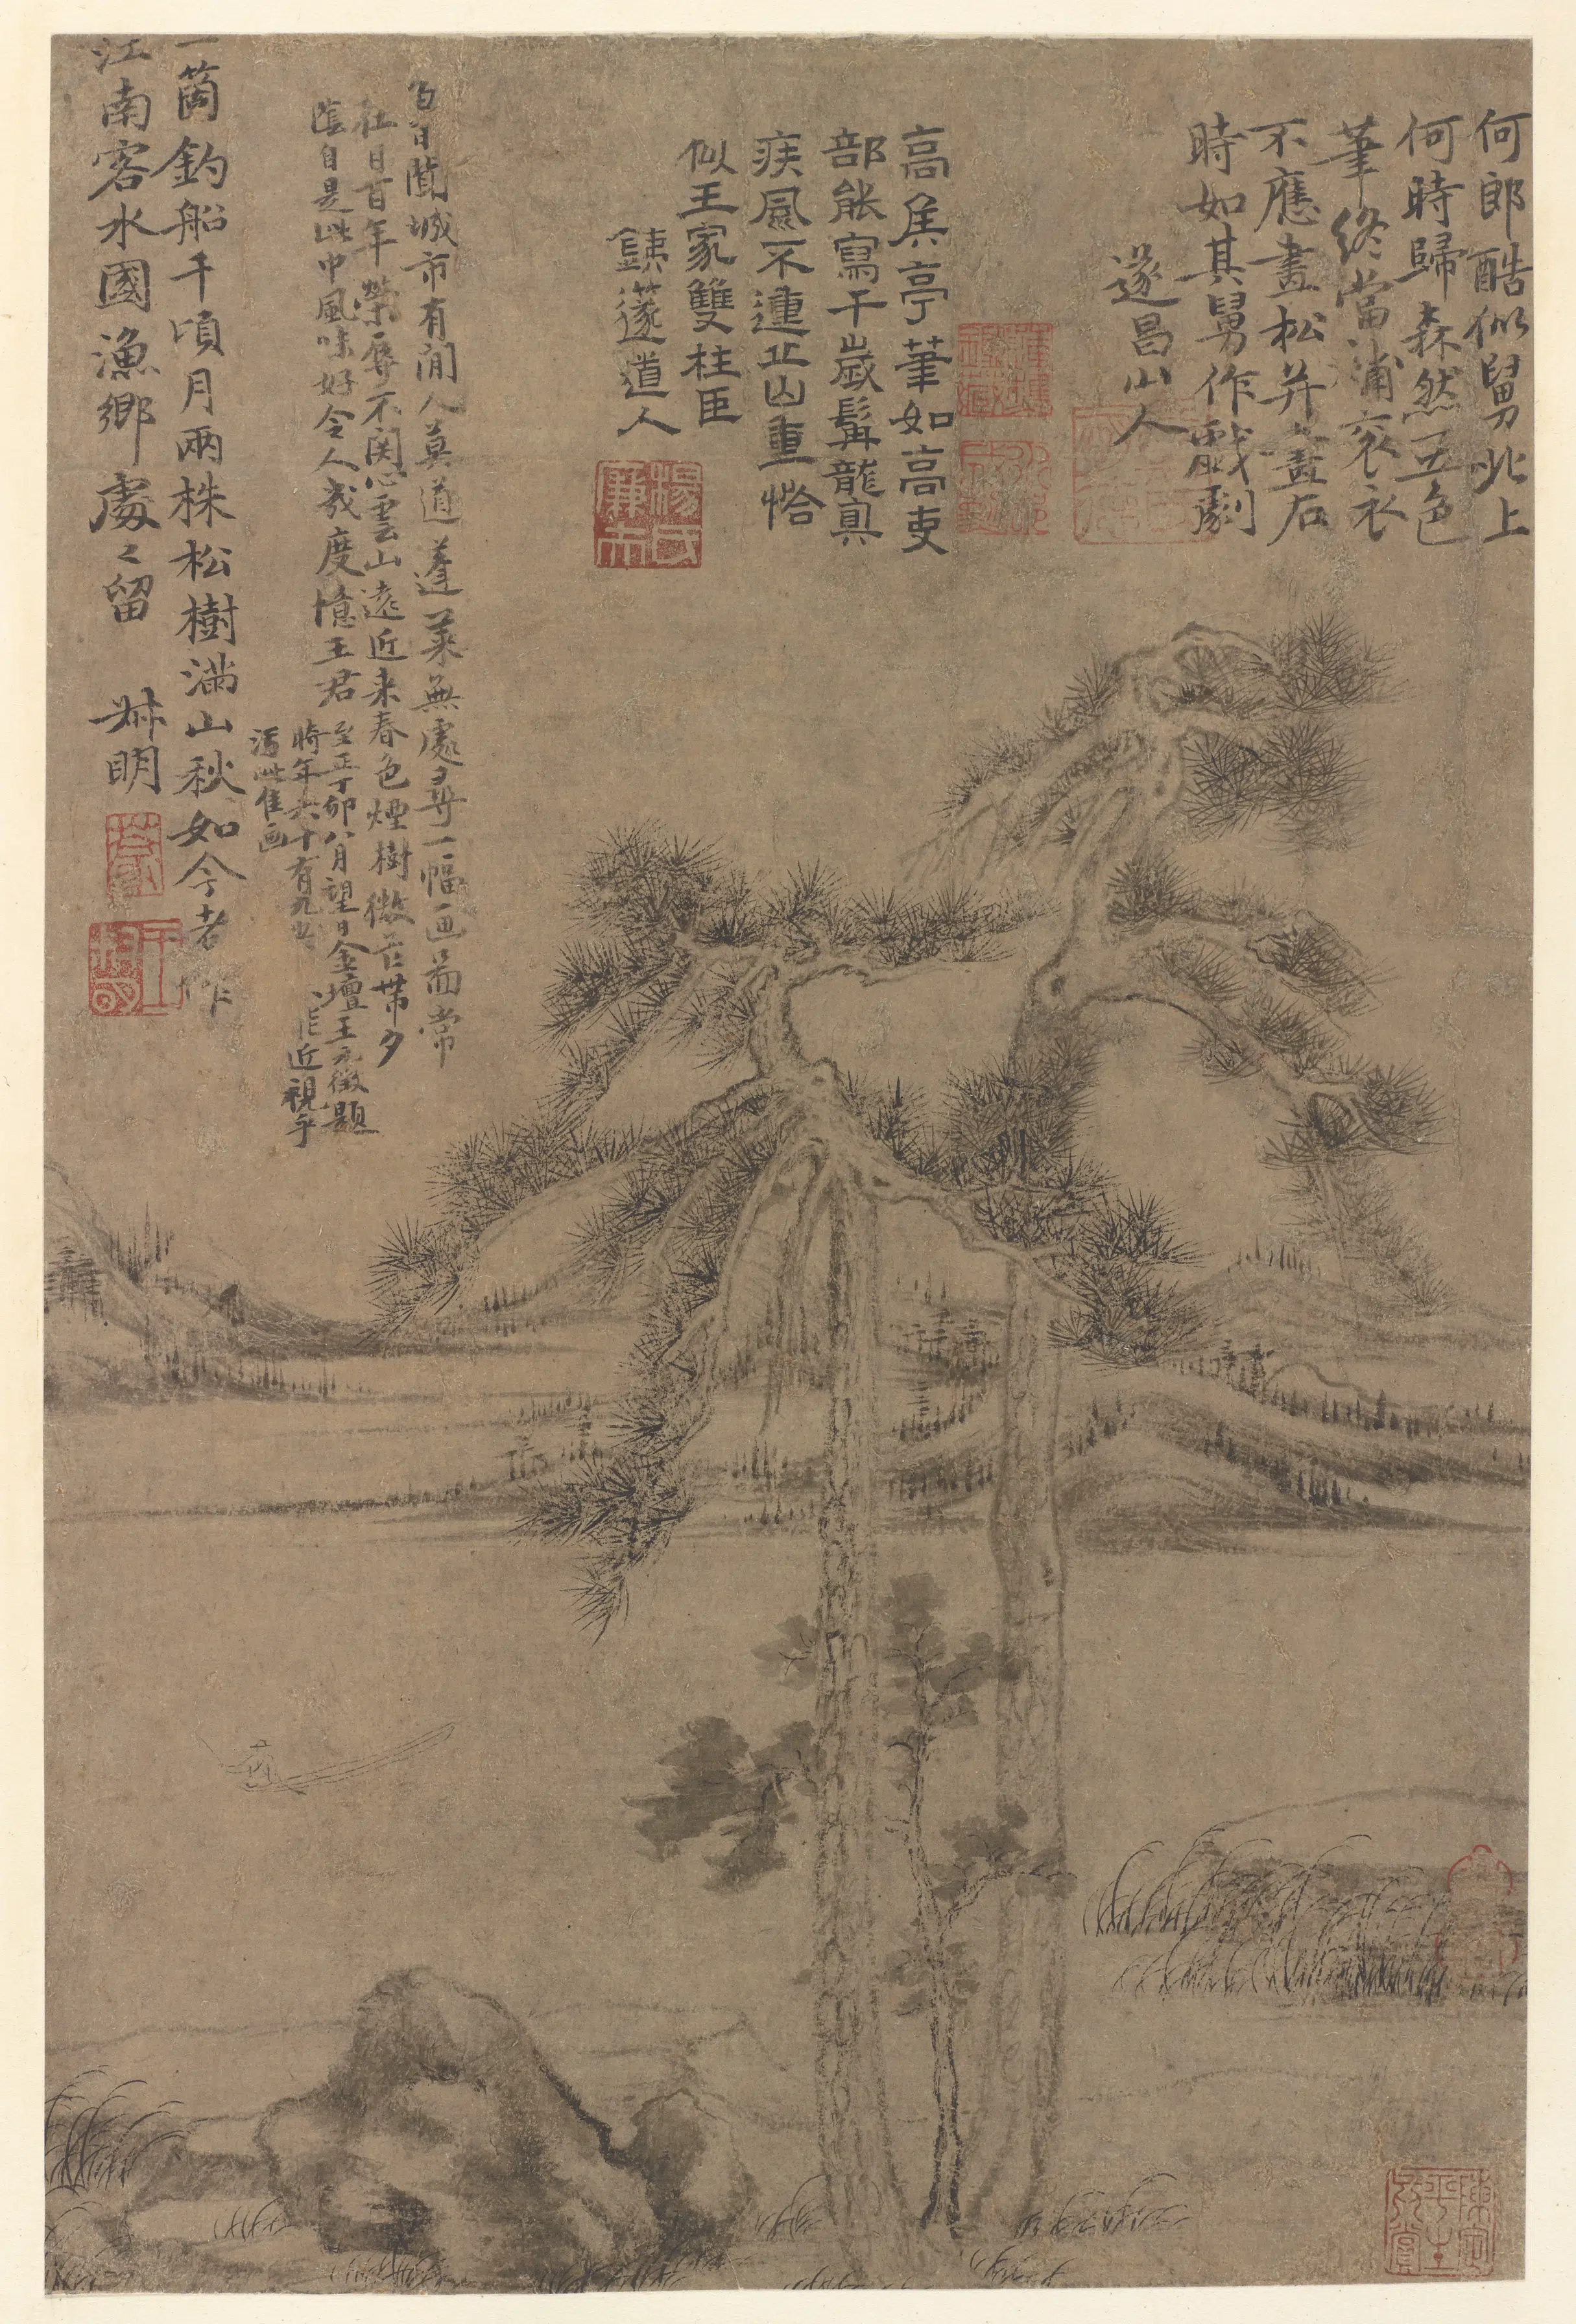 何郎酷似舅北上
何時歸森然五色
筆終當補袞衣
不應畫松并畫石
時如其舅作戲劇
遂昌山人
高侯亭筆如高吏
部能寫千歲髯龍真
疾風不連止山重恰
似王家雙柱臣
鐵篴道人
楊氏廉夫
百日闤城市有閒人莫道蓬萊無處尋一幅画啚常
社日百年榮辱不関心雲山遠近来春色煙樹微茫帶夕
陰自是此中風味好令人幾度憶王君
至正丁卯八月望日金壇王元徵題
時年六十有九 近視乎
此佳画
一箇釣船千頃月兩株松樹滿山秋如今老作
江南客水國漁鄉處々留 叔明